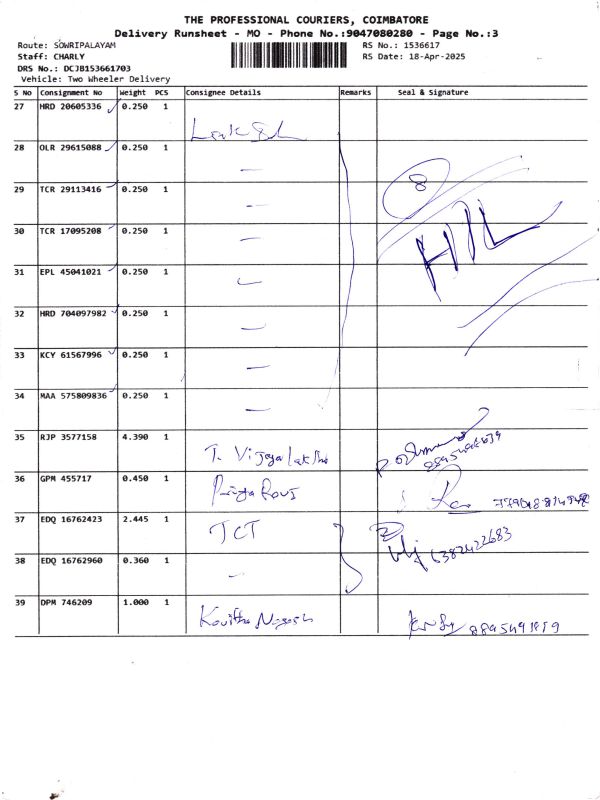 THE PROFESSIONAL COURIERS, COIMBATORE
Delivery Runsheet - MO - Phone No.:9047080280 - Page No.:3
Route: SOWRIPALAYAM RS No.: 1536617
Staff: CHARLY RS Date: 18-Apr-2025
DRS No.: DCJB153661703
Vehicle: Two Wheeler Delivery
S No Consignment No Weight PCS Consignee Details Remarks Seal & Signature
27 HRD 20605336 0.250 1
28 OLR 29615088 0.250 1 —
29 TCR 29113416 0.250 1 — 8
30 TCR 17095208 0.250 1 — HIL
31 EPL 45041021 0.250 1 —
32 HRD 704097982 0.250 1 —
33 KCY 61567996 0.250 1 —
34 MAA 575809836 0.250 1 —
35 RJP 3577158 4.390 1 T. Vijayalakshmi
36 GPM 455717 0.450 1 Priya Ravi
37 EDQ 16762423 2.445 1 TCT 6382422683
38 EDQ 16762960 0.360 1 —
39 DPM 746209 1.000 1 Kavitha Nagesh